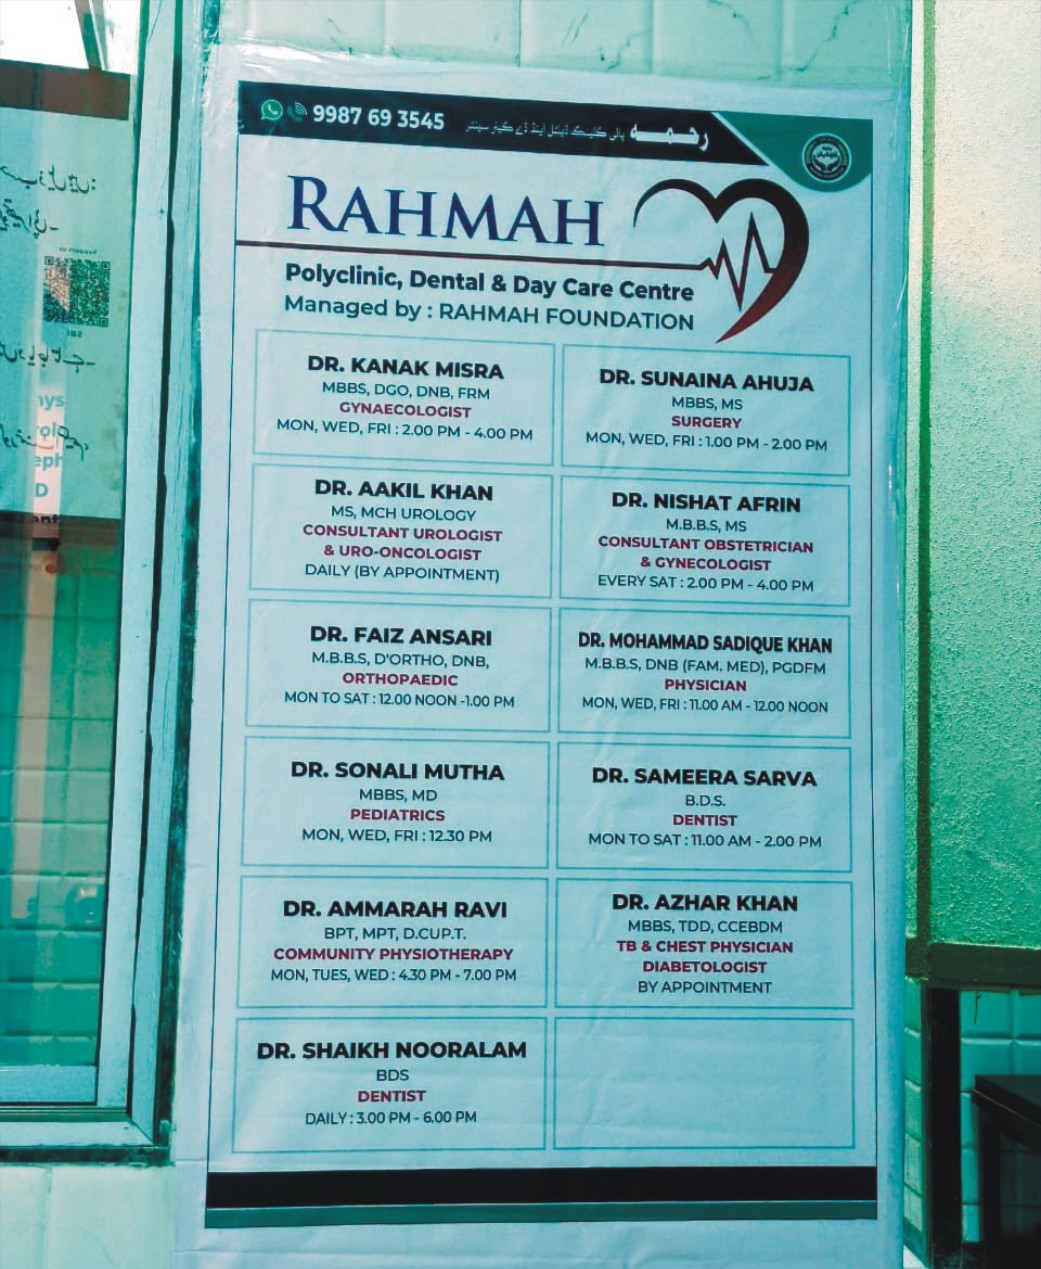 9987 69 3545
رحمہ پالی کلینک ڈینٹل اینڈ ڈے کیئر سینٹر
RAHMAH
Polyclinic, Dental & Day Care Centre
Managed by : RAHMAH FOUNDATION
DR. KANAK MISRA
MBBS, DGO, DNB, FRM
GYNAECOLOGIST
MON, WED, FRI : 2.00 PM - 4.00 PM
DR. SUNAINA AHUJA
MBBS, MS
SURGERY
MON, WED, FRI : 1.00 PM - 2.00 PM
DR. AAKIL KHAN
MS, MCH UROLOGY
CONSULTANT UROLOGIST
& URO-ONCOLOGIST
DAILY (BY APPOINTMENT)
DR. NISHAT AFRIN
M.B.B.S, MS
CONSULTANT OBSTETRICIAN
& GYNECOLOGIST
EVERY SAT : 2.00 PM - 4.00 PM
DR. FAIZ ANSARI
M.B.B.S, D'ORTHO, DNB,
ORTHOPAEDIC
MON TO SAT : 12.00 NOON -1.00 PM
DR. MOHAMMAD SADIQUE KHAN
M.B.B.S, DNB (FAM. MED), PGDFM
PHYSICIAN
MON, WED, FRI : 11.00 AM - 12.00 NOON
DR. SONALI MUTHA
MBBS, MD
PEDIATRICS
MON, WED, FRI : 12.30 PM
DR. SAMEERA SARVA
B.D.S.
DENTIST
MON TO SAT : 11.00 AM - 2.00 PM
DR. AMMARAH RAVI
BPT, MPT, D.CUP.T.
COMMUNITY PHYSIOTHERAPY
MON, TUES, WED : 4.30 PM - 7.00 PM
DR. AZHAR KHAN
MBBS, TDD, CCEBDM
TB & CHEST PHYSICIAN
DIABETOLOGIST
BY APPOINTMENT
DR. SHAIKH NOORALAM
BDS
DENTIST
DAILY : 3.00 PM - 6.00 PM